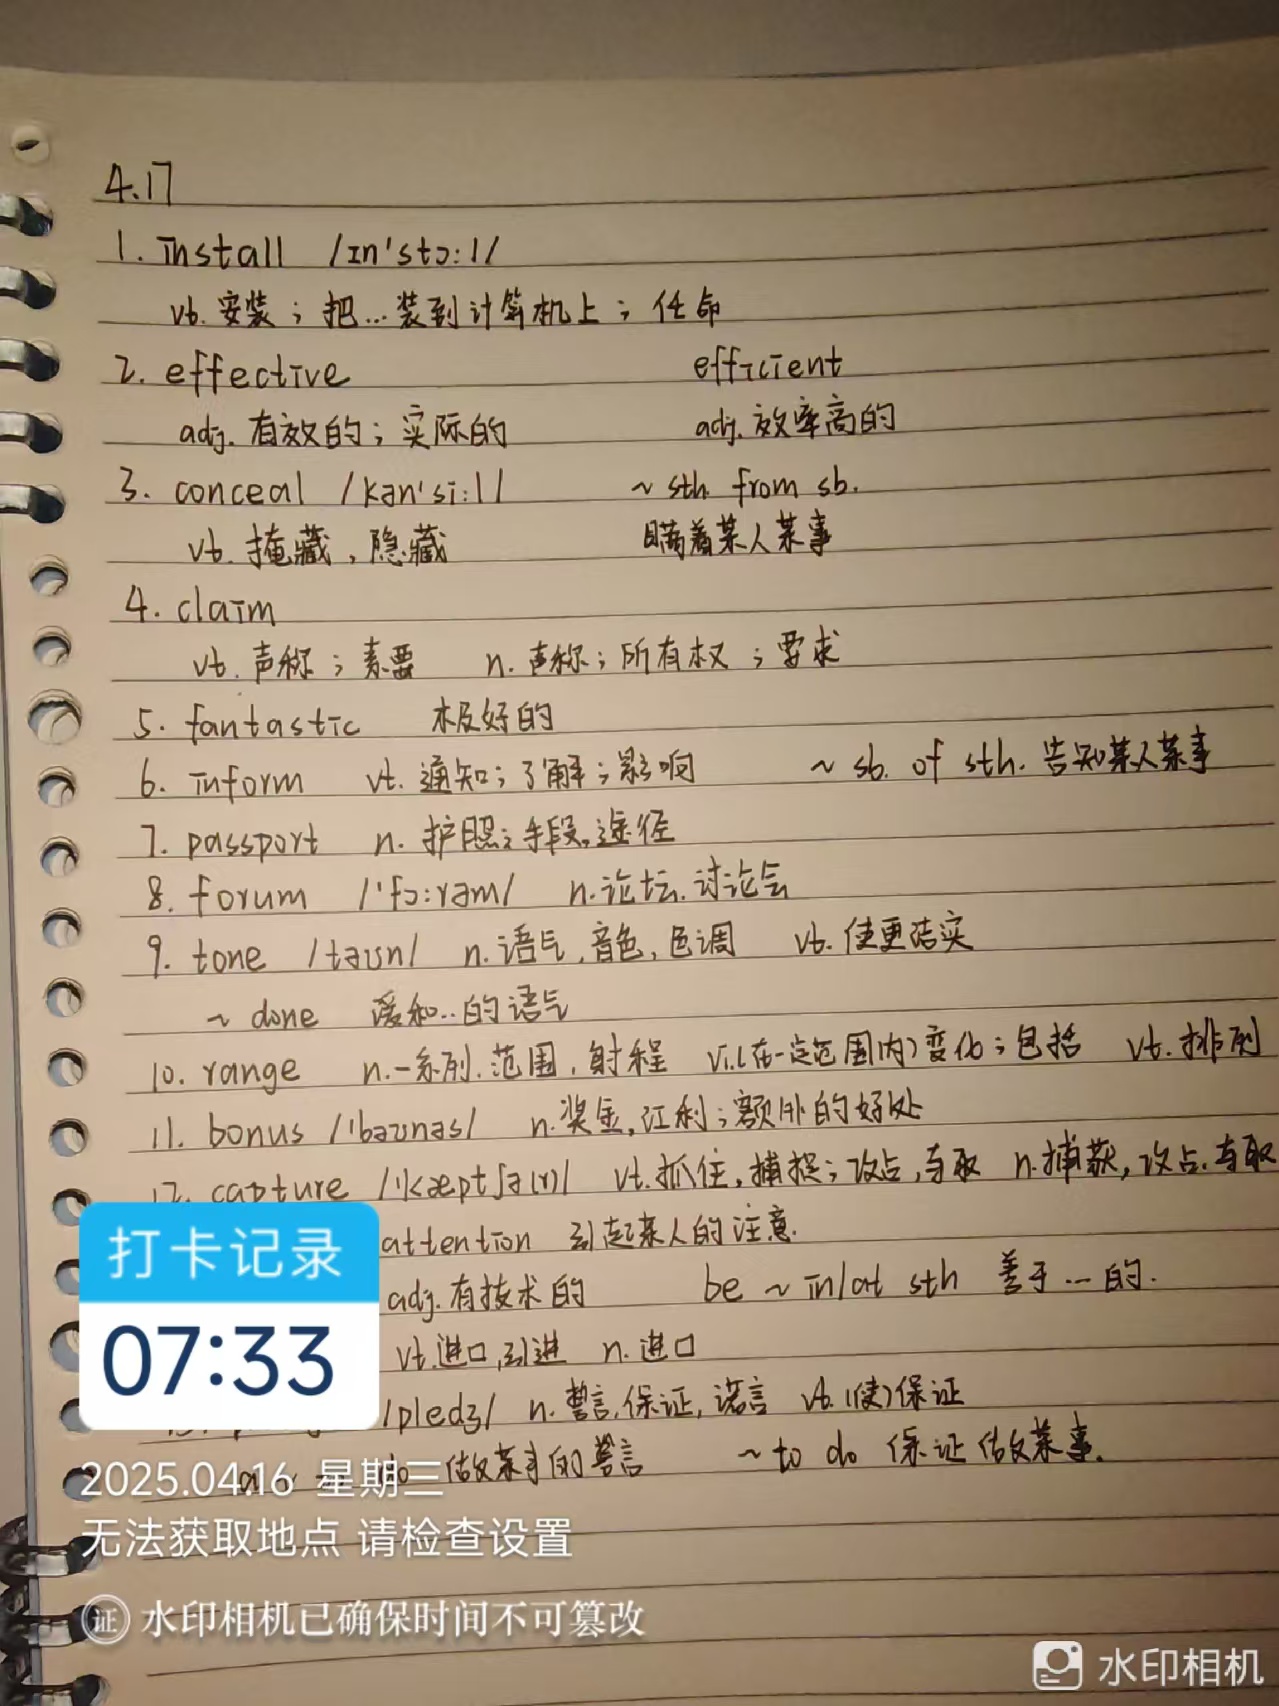 4.17
1. install /ɪn'stɔ:l/
vt. 安装；把...装到计算机上；任命
2. effective efficient
adj. 有效的；实际的 adj. 效率高的
3. conceal /kən'si:l/ ~ sth from sb.
vt. 掩藏，隐藏 瞒着某人某事
4. claim
vt. 声称；索要 n. 声称；所有权；要求
5. fantastic 极好的
6. inform vt. 通知；了解；影响 ~ sb. of sth. 告知某人某事
7. passport n. 护照；手段，途径
8. forum /'fɔ:rəm/ n. 论坛，讨论会
9. tone /təʊn/ n. 语气，音色，色调 vt. 使更结实
~ done 缓和..的语气
10. range n. 一系列，范围，射程 vi.(在一定范围内)变化；包括 vt. 排列
11. bonus /'bəʊnəs/ n. 奖金，红利；额外的好处
12. capture /'kæptʃə(r)/ vt. 抓住，捕捉；攻占，夺取 n. 捕获，攻占，夺取
attention 引起某人的注意.
adj. 有技术的 be ~ in/at sth 善于...的.
vt. 进口，引进 n. 进口
/pledʒ/ n. 誓言，保证，诺言 vt. (使)保证
do 做某事的誓言 ~ to do 保证做某事.
打卡记录
07:33
2025.04.16 星期三
无法获取地点 请检查设置
证 水印相机已确保时间不可篡改
水印相机